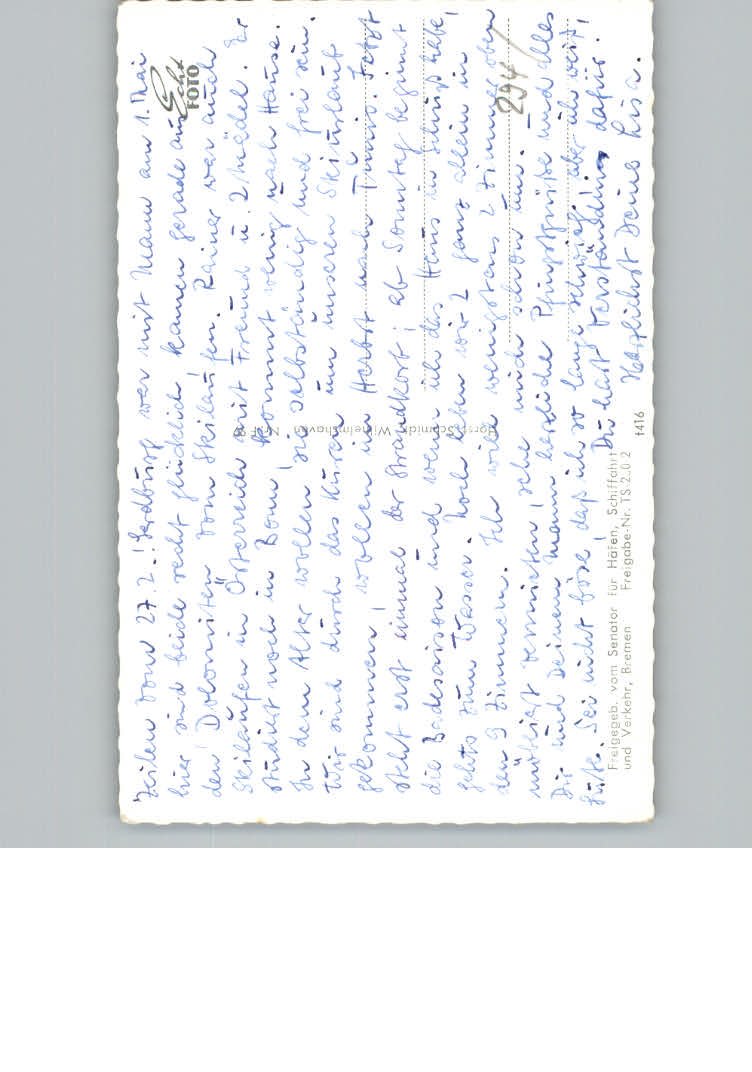 Zeilen vom 27.2.! Gerdburg war mit Mann am 1. Mai
hier sind beide recht glücklich kamen gerade aus
den Dolomiten vom Skilaufen. Rainer war auch
Skilaufen in Österreich mit Freund u. 2 Mädel. Er
studiert noch in Bonn! kommt wenig nach Hause.
In dem Alter wollen sie selbständig und frei sein.
Wir sind durch das um unseren Skiurlaub
gekommen! wollen im Herbst nach Tunis. Jetzt
steht erst einmal der Strandkorb! ab Sonntag beginnt
die Badesaison und wenn ich das Haus in Schuß habe,
gehts zum Wasser. Noch leben wir 2 ganz allein in
den 9 Zimmern. Ich will wenigstens 2 Zimmer oben
möbliert vermieten! sehe mich schon um. –
Dir und Deinem Mann herzliche Pfingstgrüße und alles
Gute. Sei nicht böse, daß ich so lange schwieg! aber ich weiß!
Du hast Verständnis dafür!
Herzlichst Deine Lisa.
Echt
FOTO
294
Horst Schmidt, Wilhelmshaven Nr. F
Freigegeb. vom Senator für Häfen, Schiffahrt
und Verkehr, Bremen Freigabe-Nr. TS 2.0 2
t416